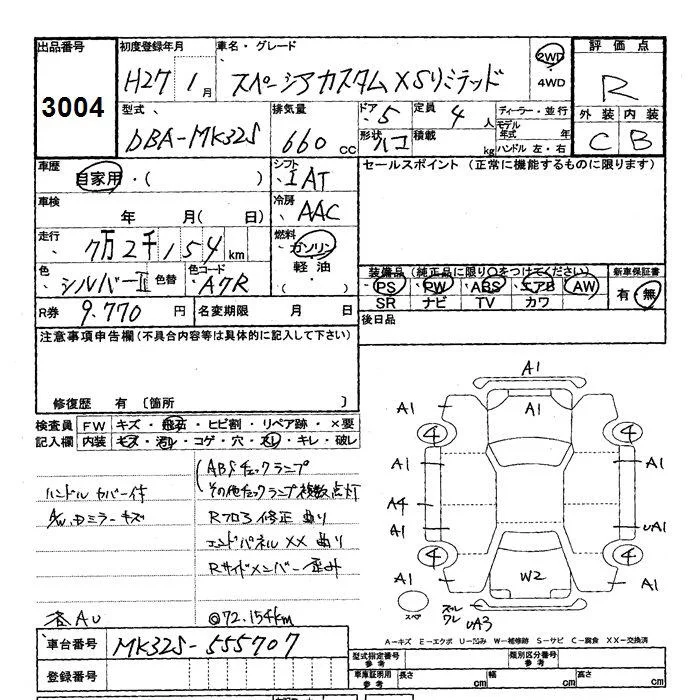 出品番号
3004
初度登録年月
H27 1月
車名・グレード
スペーシアカスタム XSリミテッド
2WD
・
4WD
評価点
R
外装 内装
C B
型式
DBA-MK32S
排気量
660 cc
ドア 5
形状 ハコ
定員 4人
積載 kg
ディーラー・並行
モデル
年式 年
ハンドル 左・右
車歴
自家用・( )
シフト
IAT
セールスポイント(正常に機能するものに限ります)
車検
年 月( 日)
冷房
AAC
走行
7万2千154km
燃料
ガソリン
・
軽油
色
シルバーII
色替
色コード
A7R
装備品(純正品に限り○をつけてください)
・PS・PW・ABS・エアB AW
SR ナビ TV カワ
新車保証書
有・無
R券 9.770円
名変期限 月 日
後日品
注意事項申告欄(不具合内容等は具体的に記入して下さい)
修復歴 有〔箇所 〕
検査員 FW キズ・飛石・ヒビ割・リペア跡・×要
記入欄 内装 キズ・汚レ・コゲ・穴・スレ・キレ・破レ
ハンドルカバー付
A/W、Dミラーキズ
ABSチェックランプ
その他チェックランプ複数点灯
Rフロア修正 曲り
エンドパネル XX 曲り
Rサイドメンバー 歪み
@72.154km
A1
A1 A1 A1
4 4
A1 A1
A4
A1 UA1
4 4
A1 W2 A1
スペア
UA3
A-キズ E-エクボ U-凹み W-補修跡 S-サビ C-腐食 XX-交換済
車台番号 MK32S-555707
登録番号
型式指定番号
参考
類別区分番号
参考
車庫証明用
参考
長さ cm
幅 cm
高さ cm